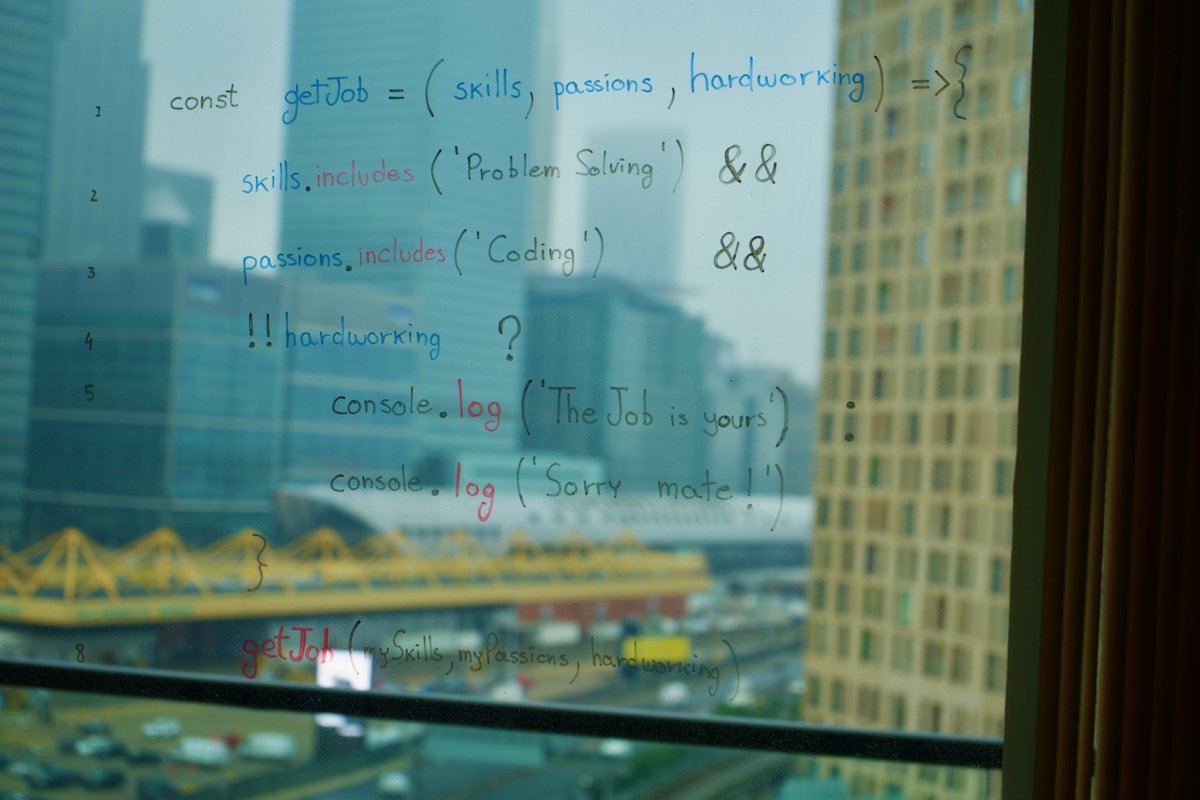 1 const getJob = ( skills, passions , hardworking) =>{
2 skills.includes ('Problem Solving') &&
3 passions.includes ('Coding') &&
4 !!hardworking ?
5 console.log ('The Job is yours') :
console.log ('Sorry mate!')
}
8 getJob (mySkills, myPassions, hardworking)